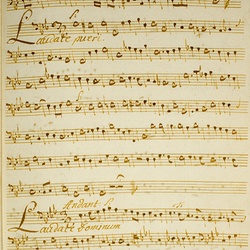 Laudate pueri
Andante
Laudate Dominum